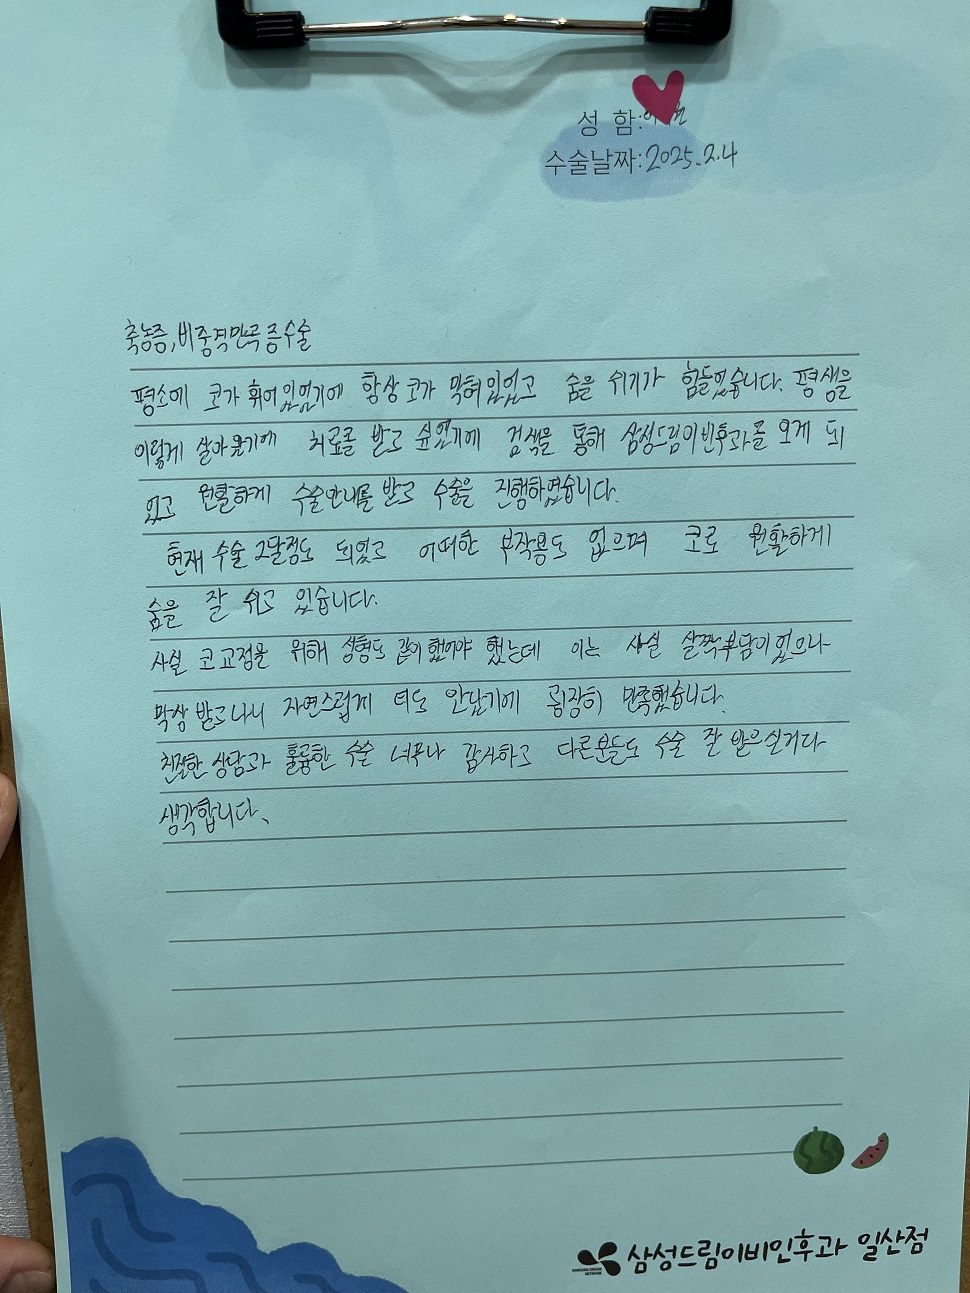 성 함:
수술날짜: 2025.2.4
축농증, 비중격만곡증수술
평소에 코가 휘어있었기에 항상 코가 막혀있었고 숨을 쉬기가 힘들었습니다. 평생을
이렇게 살아왔기에 치료를 받고 싶었기에 검색을 통해 삼성드림이비인후과를 오게 되
었고 원활하게 수술안내를 받고 수술을 진행하였습니다.
현재 수술 2달정도 되었고 어떠한 부작용도 없으며 코로 원활하게
숨을 잘 쉬고 있습니다.
사실 코교정을 위해 성형도 같이 했어야 했는데 이는 사실 살짝 부담이었으나
막상 받고나니 자연스럽게 티도 안났기에 굉장히 만족했습니다.
친절한 상담과 훌륭한 수술 너무나 감사하고 다른분들도 수술 잘 받으실거다
생각합니다.
삼성드림이비인후과 일산점